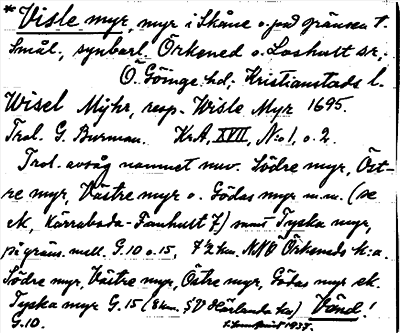 * Visle myr, myr i Skåne o. på gränsen t.
Smål., synbarl. Örkened o. Loshult sr,
Ö. Göinge hd, Kristianstads l.
Wisel Myhr, resp. Wisle Myr 1695.
Trol. G. Burman. KrA, XVII, No 1, o. 2.
Trol. avsåg namnet nuv. Södre myr, Öst-
re myr, Västre myr o. Gödas myr m.m. (se
ek, Kärraboda-Famhult 7) samt Tyska myr,
på gräns. mell. G.10 o. 15, 7 ½ km. NNV Örkeneds k:a.
Södre myr, Västre myr, Östre myr, Gödas myr ek.
Tyska myr G.15 (8 km. SV Härlunda ka) Vänd!
G.10. 1938.